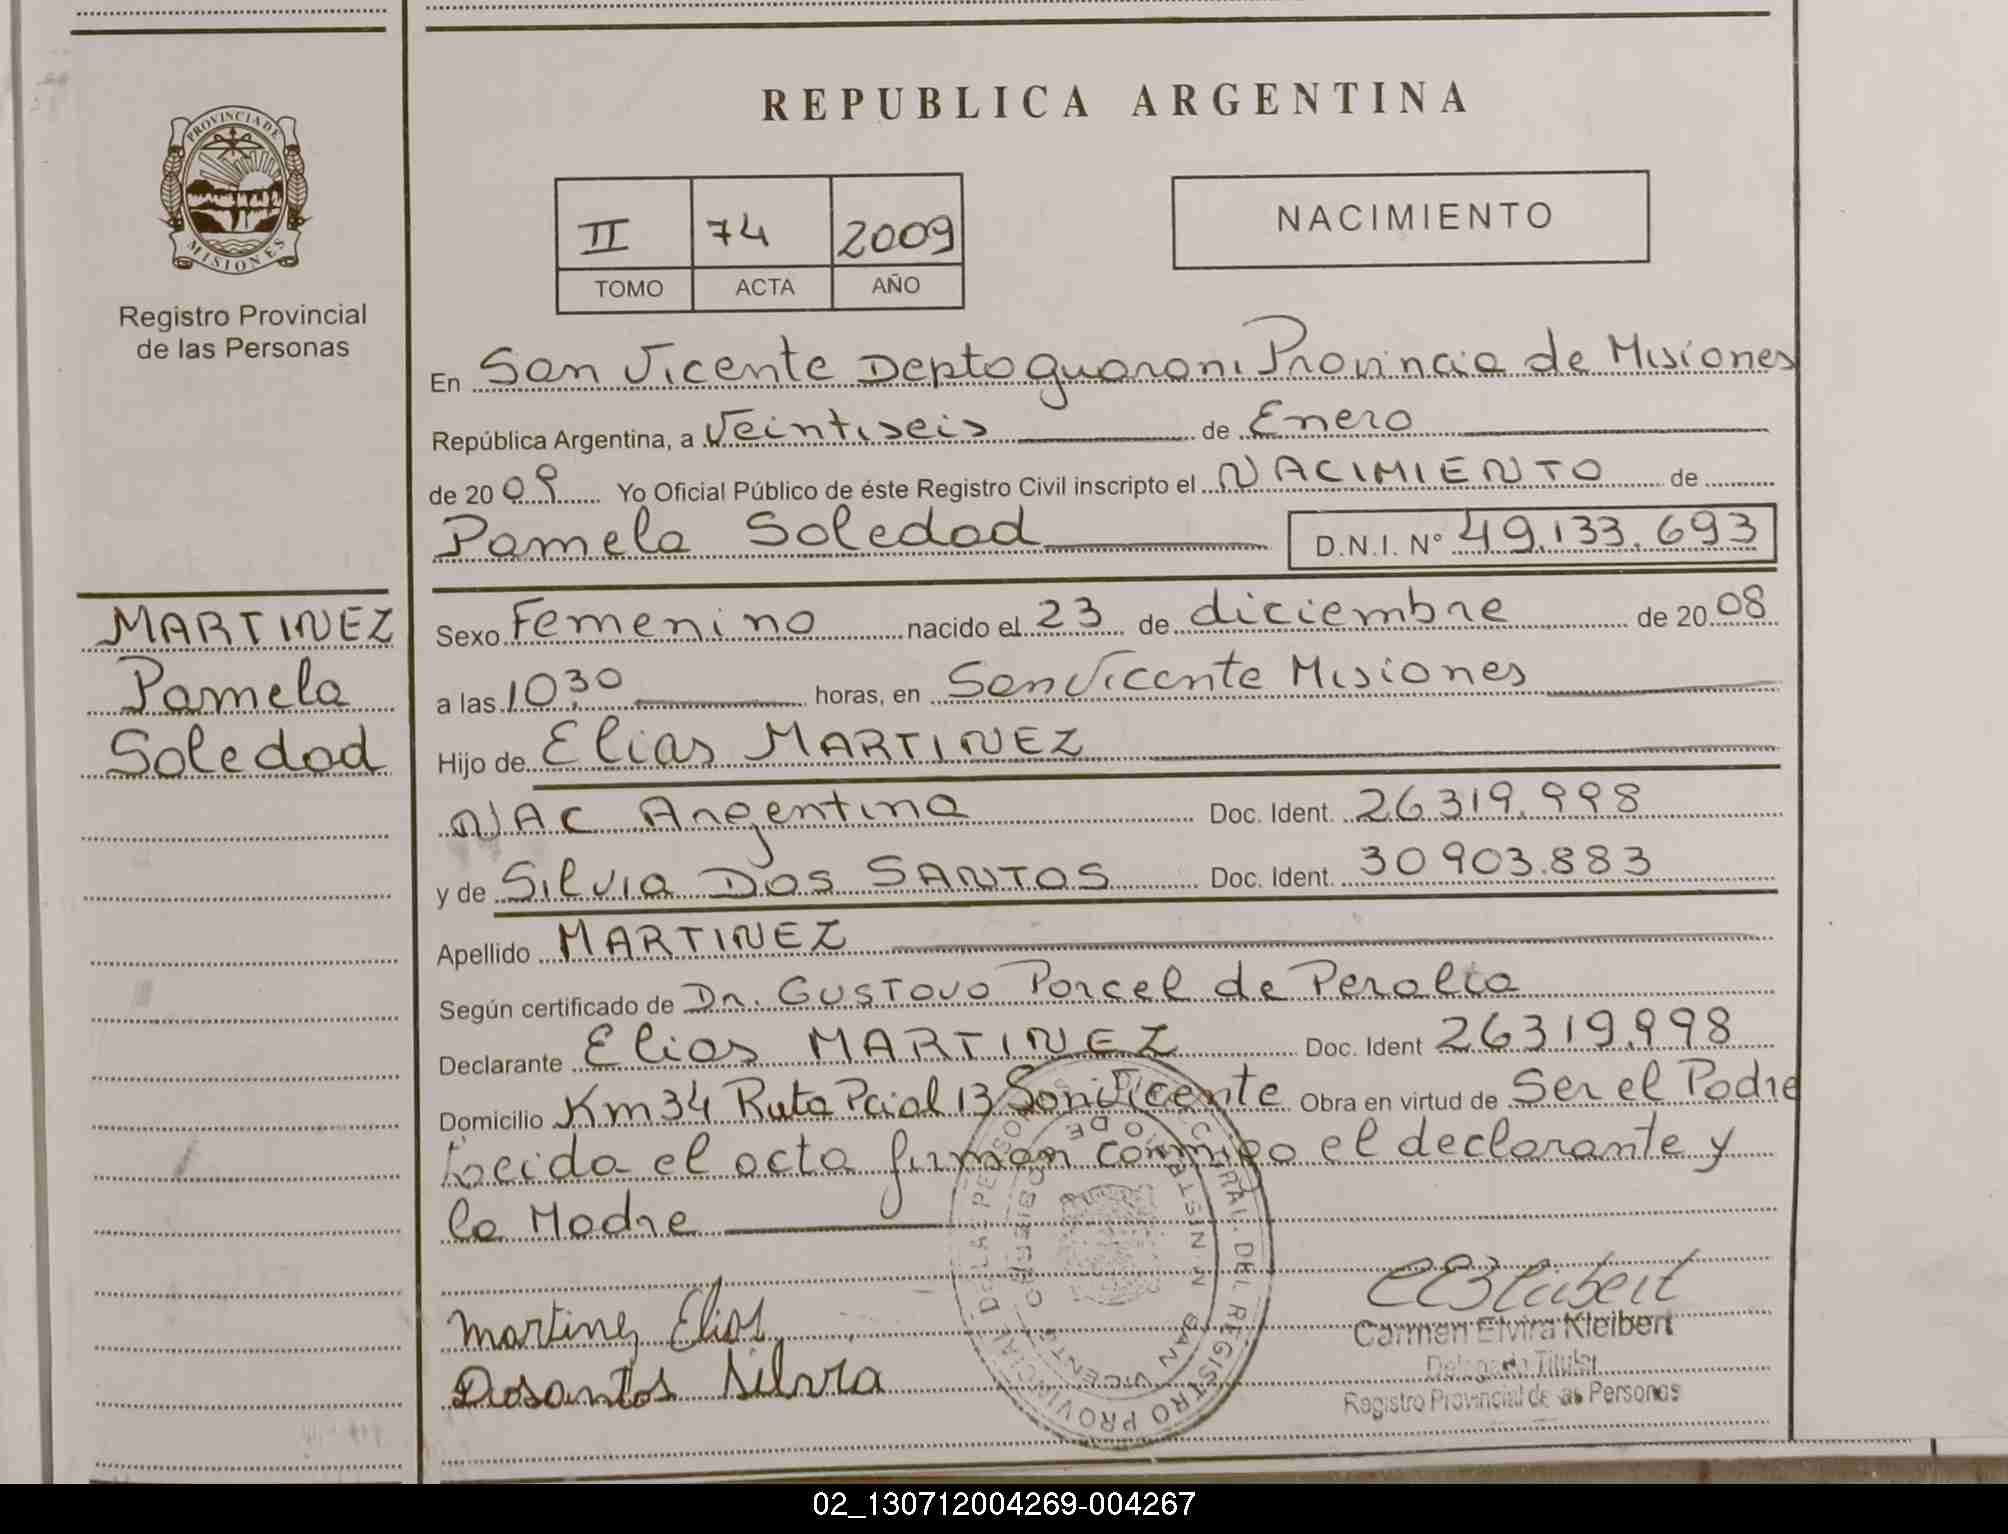 REPUBLICA ARGENTINA
PROVINCIA DE
MISIONES
Registro Provincial
de las Personas
II 74 2009
TOMO ACTA AÑO
NACIMIENTO
En San Vicente Depto guarani Provincia de Misiones
República Argentina, a Veintiseis de Enero
de 2009 Yo Oficial Público de éste Registro Civil inscripto el NACIMIENTO de
Pamela Soledad D.N.I. N° 49.133.693
MARTINEZ
Pamela
Soledad
Sexo Femenino nacido el 23 de diciembre de 2008
a las 10,30 horas, en San Vicente Misiones
Hijo de Elias MARTINEZ
NAC Argentina Doc. Ident. 26319.998
y de Silvia DOS SANTOS Doc. Ident. 30903.883
Apellido MARTINEZ
Según certificado de Dr. GUSTAVO Porcel de Peralta
Declarante Elias MARTINEZ Doc. Ident 26319.998
Domicilio Km 34 Ruta Pcial 13 San Vicente Obra en virtud de Ser el Padre
Leida el acta firman conmigo el declarante y
la Madre
Martinez Elias
Dosantos Silvia
Carmen Elvira Kleibert
Delegada Titular
Registro Provincial de las Personas
02_130712004269-004267